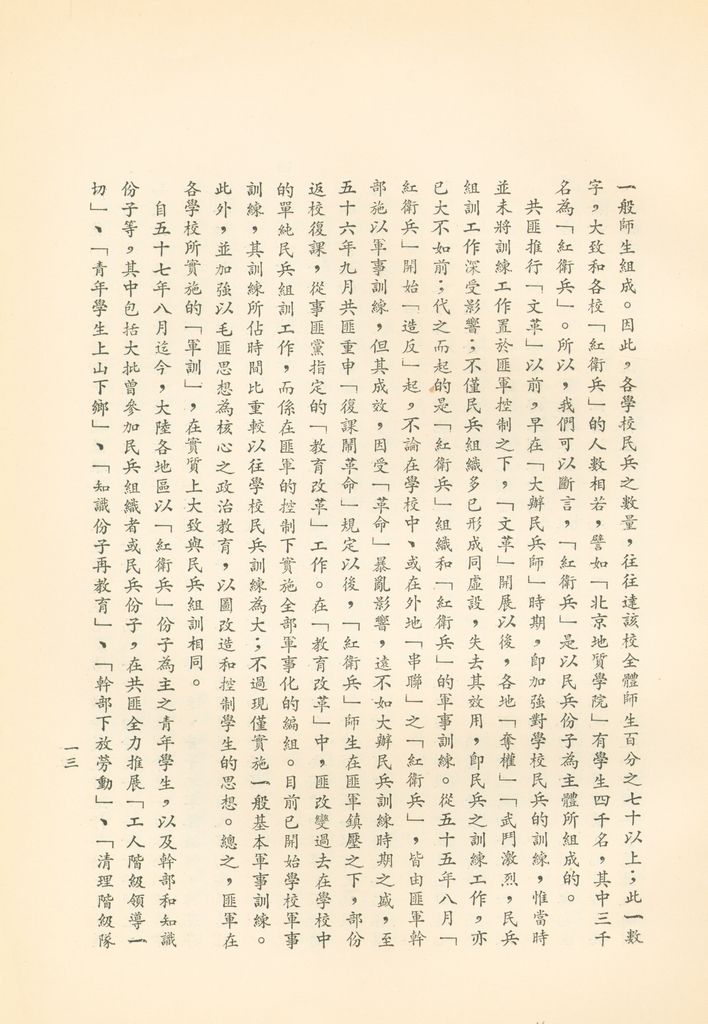 一般師生組成。因此，各學校民兵之數量，往往達該校全體師生百分之七十以上；此一數
字，大致和各校「紅衛兵」的人數相若，譬如「北京地質學院」有學生四千名，其中三千
名為「紅衛兵」。所以，我們可以斷言，「紅衛兵」是以民兵份子為主體所組成的。
共匪推行「文革」以前，早在「大辦民兵師」時期，即加強對學校民兵的訓練，惟當時
並未將訓練工作置於匪軍控制之下，「文革」開展以後，各地「奪權」「武鬥激烈，民兵
組訓工作深受影響；不僅民兵組織多已形成同虛設，失去其效用，即民兵之訓練工作，亦
已大不如前；代之而起的是「紅衛兵」組織和「紅衛兵」的軍事訓練。從五十五年八月「
紅衛兵」開始「造反」起，不論在學校中、或在外地「串聯」之「紅衛兵」，皆由匪軍幹
部施以軍事訓練，但其成效，因受「革命」暴亂影響，遠不如大辦民兵訓練時期之盛，至
五十六年九月共匪重申「復課鬧革命」規定以後，「紅衛兵」師生在匪軍鎮壓之下，部份
返校復課，從事匪黨指定的「教育改革」工作。在「教育改革」中，匪改變過去在學校中
的單純民兵組訓工作，而係在匪軍的控制下實施全部軍事化的編組。目前已開始學校軍事
訓練，其訓練所佔時間比重較以往學校民兵訓練為大；不過現僅實施一般基本軍事訓練。
此外，並加強以毛匪思想為核心之政治教育，以圖改造和控制學生的思想。總之，匪軍在
各學校所實施的「軍訓」，在實質上大致與民兵組訓相同。
自五十七年八月迄今，大陸各地區以「紅衛兵」份子為主之青年學生，以及幹部和知識
份子等，其中包括大批曾參加民兵組織者或民兵份子，在共匪全力推展「工人階級領導一
切」、「青年學生上山下鄉」、「知識份子再教育」、「幹部下放勞動」、「清理階級隊
一三